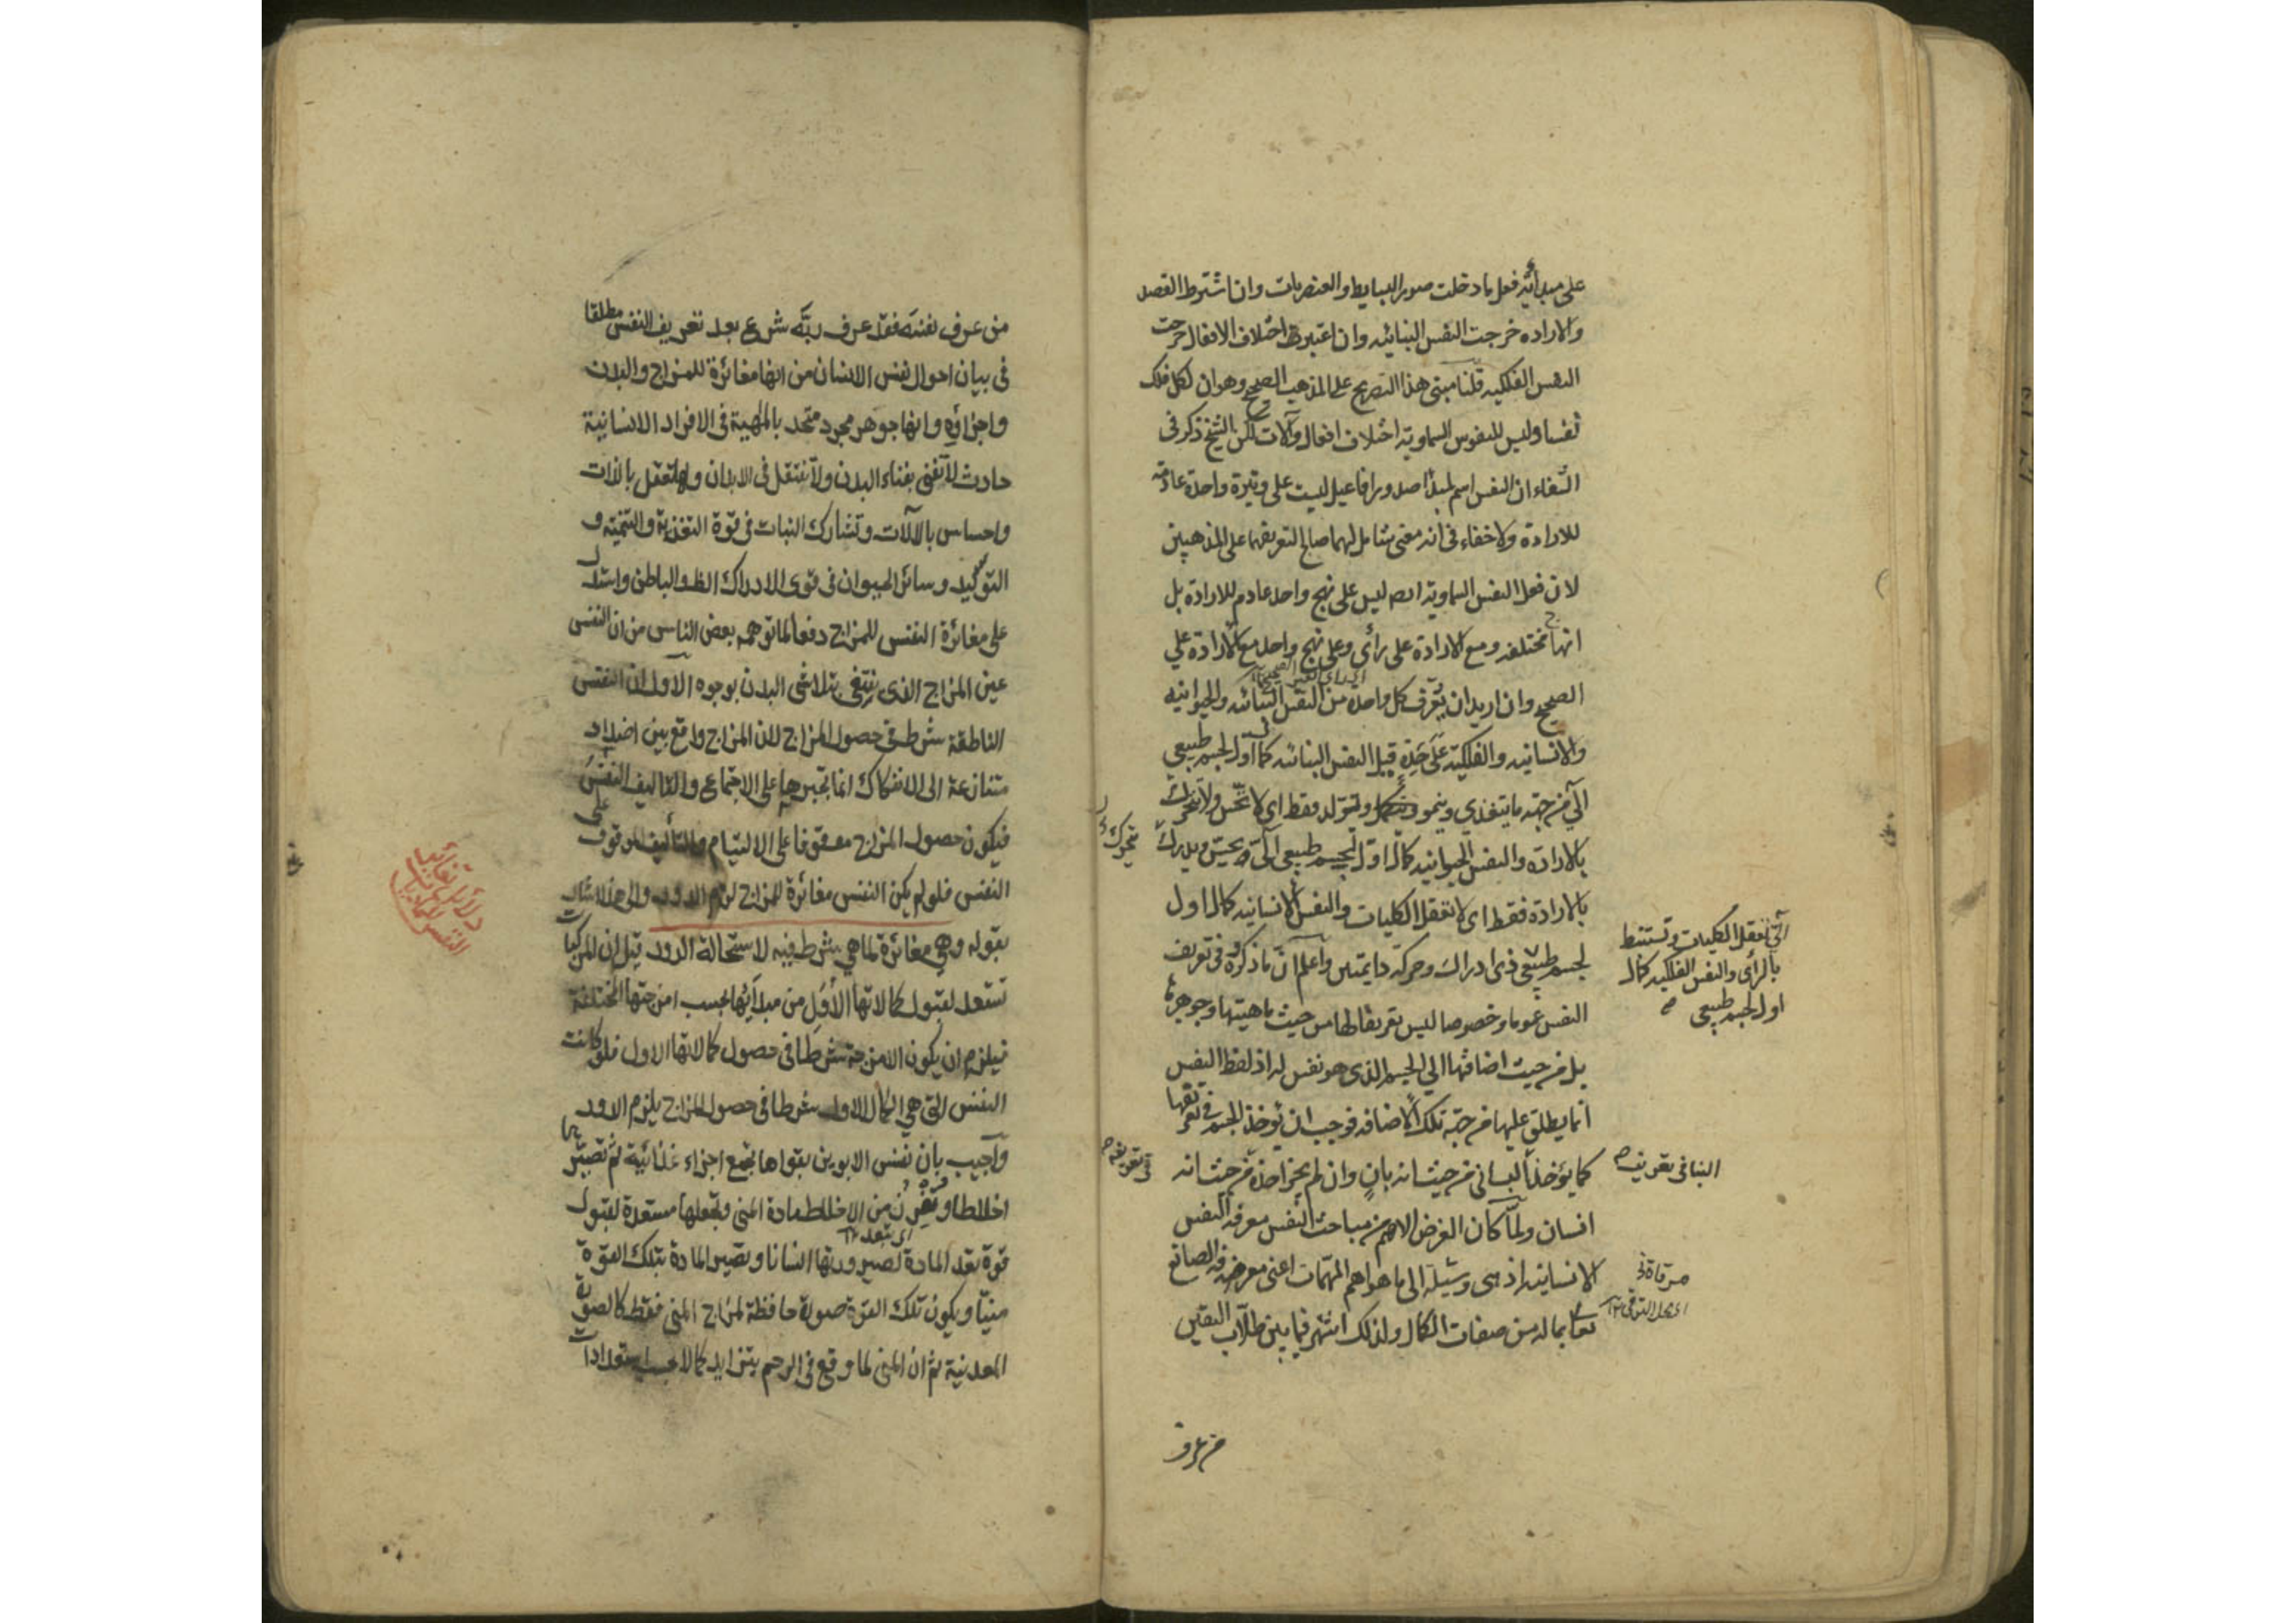 على مبدأيّة فعل ما دخلت صور البسايط والعنصريات وان اشترط القصد
والاراده خرجت النفس النباتيه وان اعتبرت اختلاف الافعال خرجت
النفس الفلكيه قلنا مبنى هذا التصريح على المذهب الصحيح وهو ان لكل فلك
نفسا وليس للنفوس السماوية اختلاف افعال وآلات لكن الشيخ ذكر في
الشفاء ان النفس اسم لمبدأ صدور افاعيل ليست على وتيرة واحدة عادمة
للارادة ولا خفاء في انه معنى شامل لهما صالح لتعريفها على المذهبين
لان فعل النفس السماوية ليس على نهج واحد عادم للارادة بل
انها مختلفه ومع الارادة على رأى وعلى نهج واحد مع الارادة على
الصحيح وان اريد ان يعرّف كل واحدة من النفس النباتيه والحيوانيه
والانسانيه والفلكية على حدة قيل النفس النباتيه كمال اول لجسم طبيعي
آلي من جهة ما يتغذى وينمو ويتولد فقط اي لا تحس ولا تتحرك
بالارادة والنفس الحيوانيه كمال اول لجسم طبيعي آلي يحس ويدرك
يتحرك
بالارادة فقط اى لا تعقل الكليات والنفس الانسانيه كمال اول
لجسم طبيعي ذى ادراك وحركة دايمتين واعلم ان ما ذكروه في تعريف
آلي تعقل الكليات وتستنبط
بالرأى والنفس الفلكيه كمال
اول لجسم طبيعي
النفس عموما وخصوصا ليس تعريفا لها من حيث ماهيتها وجوهرها
بل من حيث اضافتها الي الجسم الذى هو نفس له اذ لفظ النفس
انما يطلق عليها من جهة تلك الاضافه فوجب ان يؤخذ الجسم في تعريفها
كما يؤخذ البانى من حيث انه بانٍ وان لم يجز اخذه من حيث انه
في تعريفه
البنا في تعريف
انسان ولما كان الغرض الاهم من مباحث النفس معرفة النفس
الانسانيه اذ هى وسيلة الى ما هو اهم المهمات اعنى معرفة الصانع
مرقاة
تعالى بما له من صفات الكمال ولذلك اشتهر فيما بين طلاب اليقين
من عرف
من عرف نفسه فقد عرف ربّه شرع بعد تعريف النفس مطلقا
في بيان احوال نفس الانسان من انها مغائرة للمزاج والبدن
واجزاؤه وانها جوهر مجرد متحد بالمهية في الافراد الانسانية
حادث لا تفنى بفناء البدن ولا تنتقل في الابدان ولها تعقل بالذات
واحساس بالآلات وتشارك النبات في قوة التغذية والتنمية و
التوليد وسائر الحيوان في قوى الادراك الظ والباطن واستدل
على مغائرة النفس للمزاج دفعا لما توهمه بعض الناس من ان النفس
عين المزاج الذى ينتفى بتلاشى البدن بوجوه الاول ان النفس
الناطقة شرط في حصول المزاج لان المزاج واقع بين اضداد
متنازعة الى الانفكاك انما تجبرها على الاجتماع والتأليف النفس
فيكون حصول المزاج موقوفا على الالتيام والتأليف الموقوف على
النفس فلو لم يكن النفس مغائرة للمزاج لزم الدور والى هذا اشار
بقوله وهي مغائرة لما هي شرط فيه لاستحالة الدور قيل ان المركبات
تستعد لقبول كمالاتها الأُوَل من مبدأيها بحسب امزجتها المختلفة
فيلزم ان يكون الامزجة شرطا في حصول كمالاتها الاول فلو كانت
النفس التى هي الكمال الاول شرطا في حصول المزاج يلزم الدور
وأجيب بان نفس الابوين بقواها تجمع اجزاء غذائية ثم تصيرها
اخلاطا وتفرز من الاخلاط مادة المنى وتجعلها مستعدة لقبول
قوة تعد المادة لصيرورتها انسانا وتصير المادة بتلك القوة
منيّا ويكون تلك القوة صورة حافظة لمزاج المنى فقط كالصورة
المعدنية ثم ان المنى لما وقع في الرحم يتزايد كمالا بحسب استعدادات